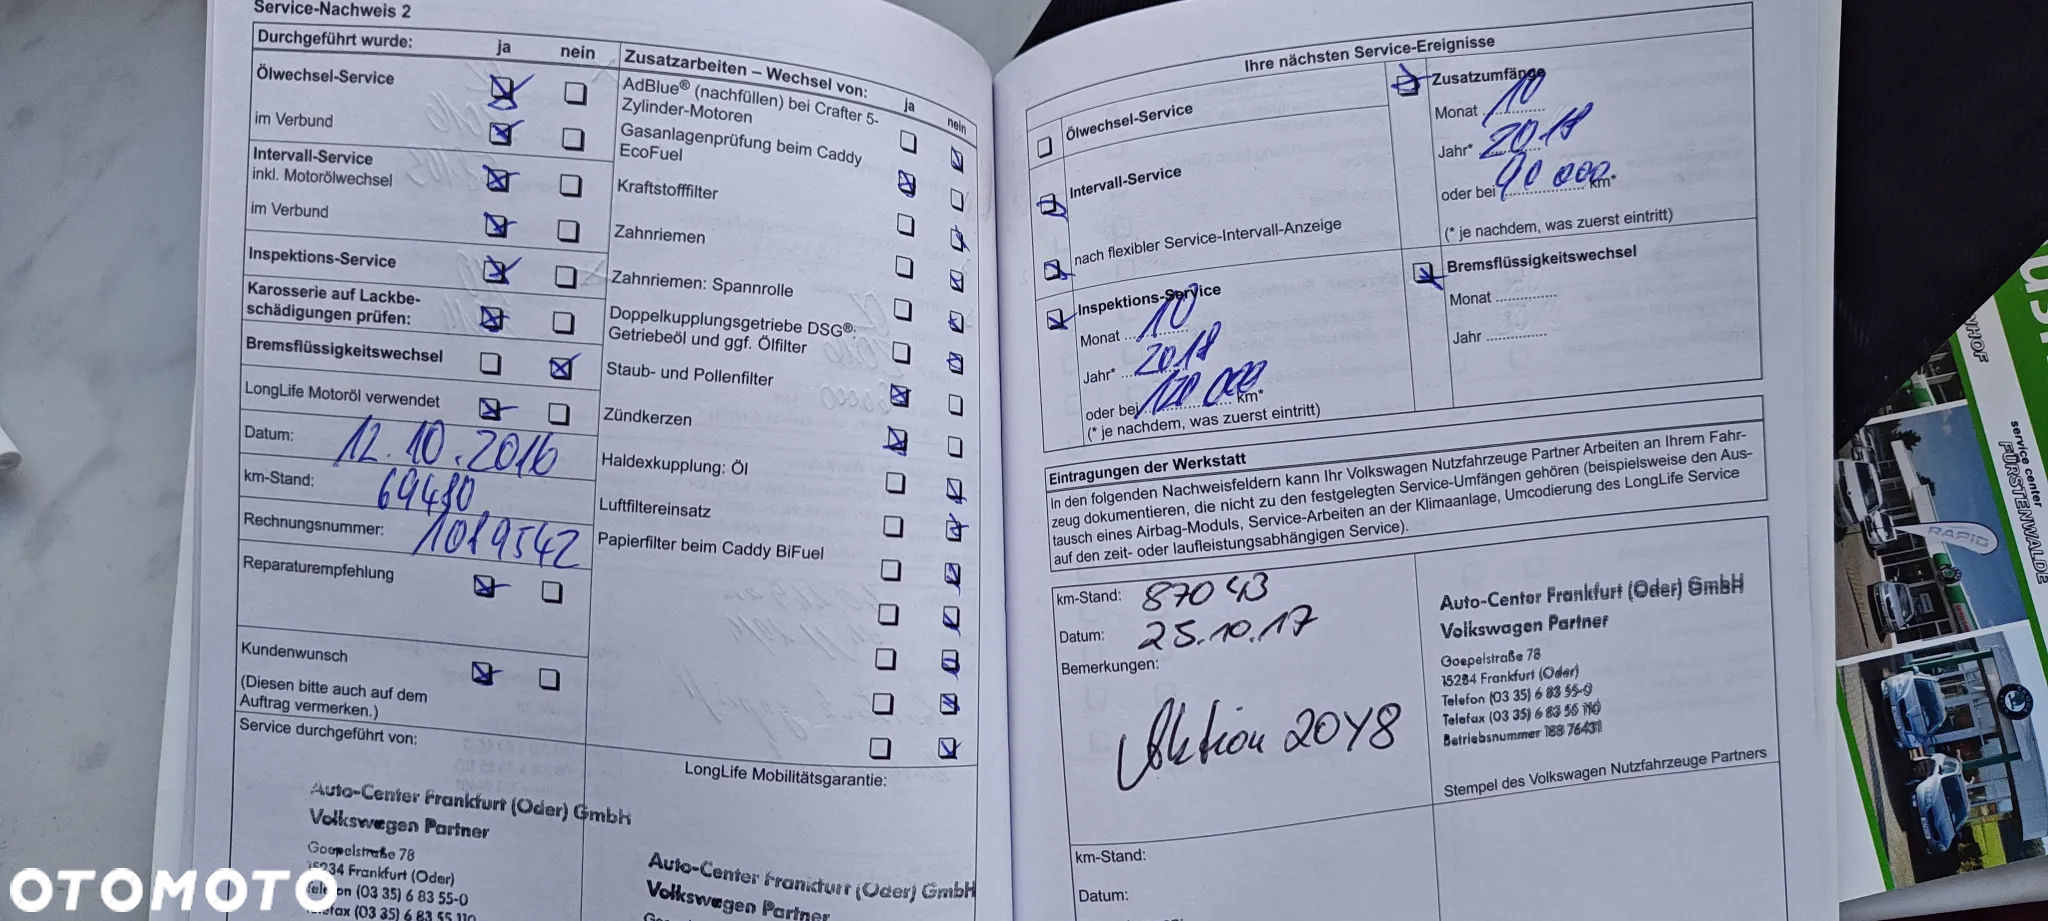 Service-Nachweis 2
Durchgeführt wurde: ja nein
Ölwechsel-Service
im Verbund
Intervall-Service
inkl. Motorölwechsel
im Verbund
Inspektions-Service
Karosserie auf Lackbe-
schädigungen prüfen:
Bremsflüssigkeitswechsel
LongLife Motoröl verwendet
Datum: 12.10.2016
km-Stand: 69480
Rechnungsnummer: 1019542
Reparaturempfehlung
Kundenwunsch
(Diesen bitte auch auf dem
Auftrag vermerken.)
Service durchgeführt von:
Auto-Center Frankfurt (Oder) GmbH
Volkswagen Partner
Goepelstraße 78
15234 Frankfurt (Oder)
Telefon (03 35) 6 83 55-0
Telefax (03 35) 6 83 55 110
Zusatzarbeiten – Wechsel von: ja nein
AdBlue® (nachfüllen) bei Crafter 5-
Zylinder-Motoren
Gasanlagenprüfung beim Caddy
EcoFuel
Kraftstofffilter
Zahnriemen
Zahnriemen: Spannrolle
Doppelkupplungsgetriebe DSG®:
Getriebeöl und ggf. Ölfilter
Staub- und Pollenfilter
Zündkerzen
Haldexkupplung: Öl
Luftfiltereinsatz
Papierfilter beim Caddy BiFuel
LongLife Mobilitätsgarantie:
Auto-Center Frankfurt (Oder) GmbH
Volkswagen Partner
Ihre nächsten Service-Ereignisse
Ölwechsel-Service
Intervall-Service
nach flexibler Service-Intervall-Anzeige
Inspektions-Service
Monat 10
Jahr* 2018
oder bei 120 000 km*
(* je nachdem, was zuerst eintritt)
Zusatzumfänge
Monat 10
Jahr* 2018
oder bei 90 000 km*
(* je nachdem, was zuerst eintritt)
Bremsflüssigkeitswechsel
Monat
Jahr
Eintragungen der Werkstatt
In den folgenden Nachweisfeldern kann Ihr Volkswagen Nutzfahrzeuge Partner Arbeiten an Ihrem Fahr-
zeug dokumentieren, die nicht zu den festgelegten Service-Umfängen gehören (beispielsweise den Aus-
tausch eines Airbag-Moduls, Service-Arbeiten an der Klimaanlage, Umcodierung des LongLife Service
auf den zeit- oder laufleistungsabhängigen Service).
km-Stand: 87043
Datum: 25.10.17
Bemerkungen:
Aktion 20Y8
Auto-Center Frankfurt (Oder) GmbH
Volkswagen Partner
Goepelstraße 78
15234 Frankfurt (Oder)
Telefon (03 35) 6 83 55-0
Telefax (03 35) 6 83 55 110
Betriebsnummer 188 76431
Stempel des Volkswagen Nutzfahrzeuge Partners
km-Stand:
Datum:
service center
FÜRSTENWALDE
RAPID
OTOMOTO